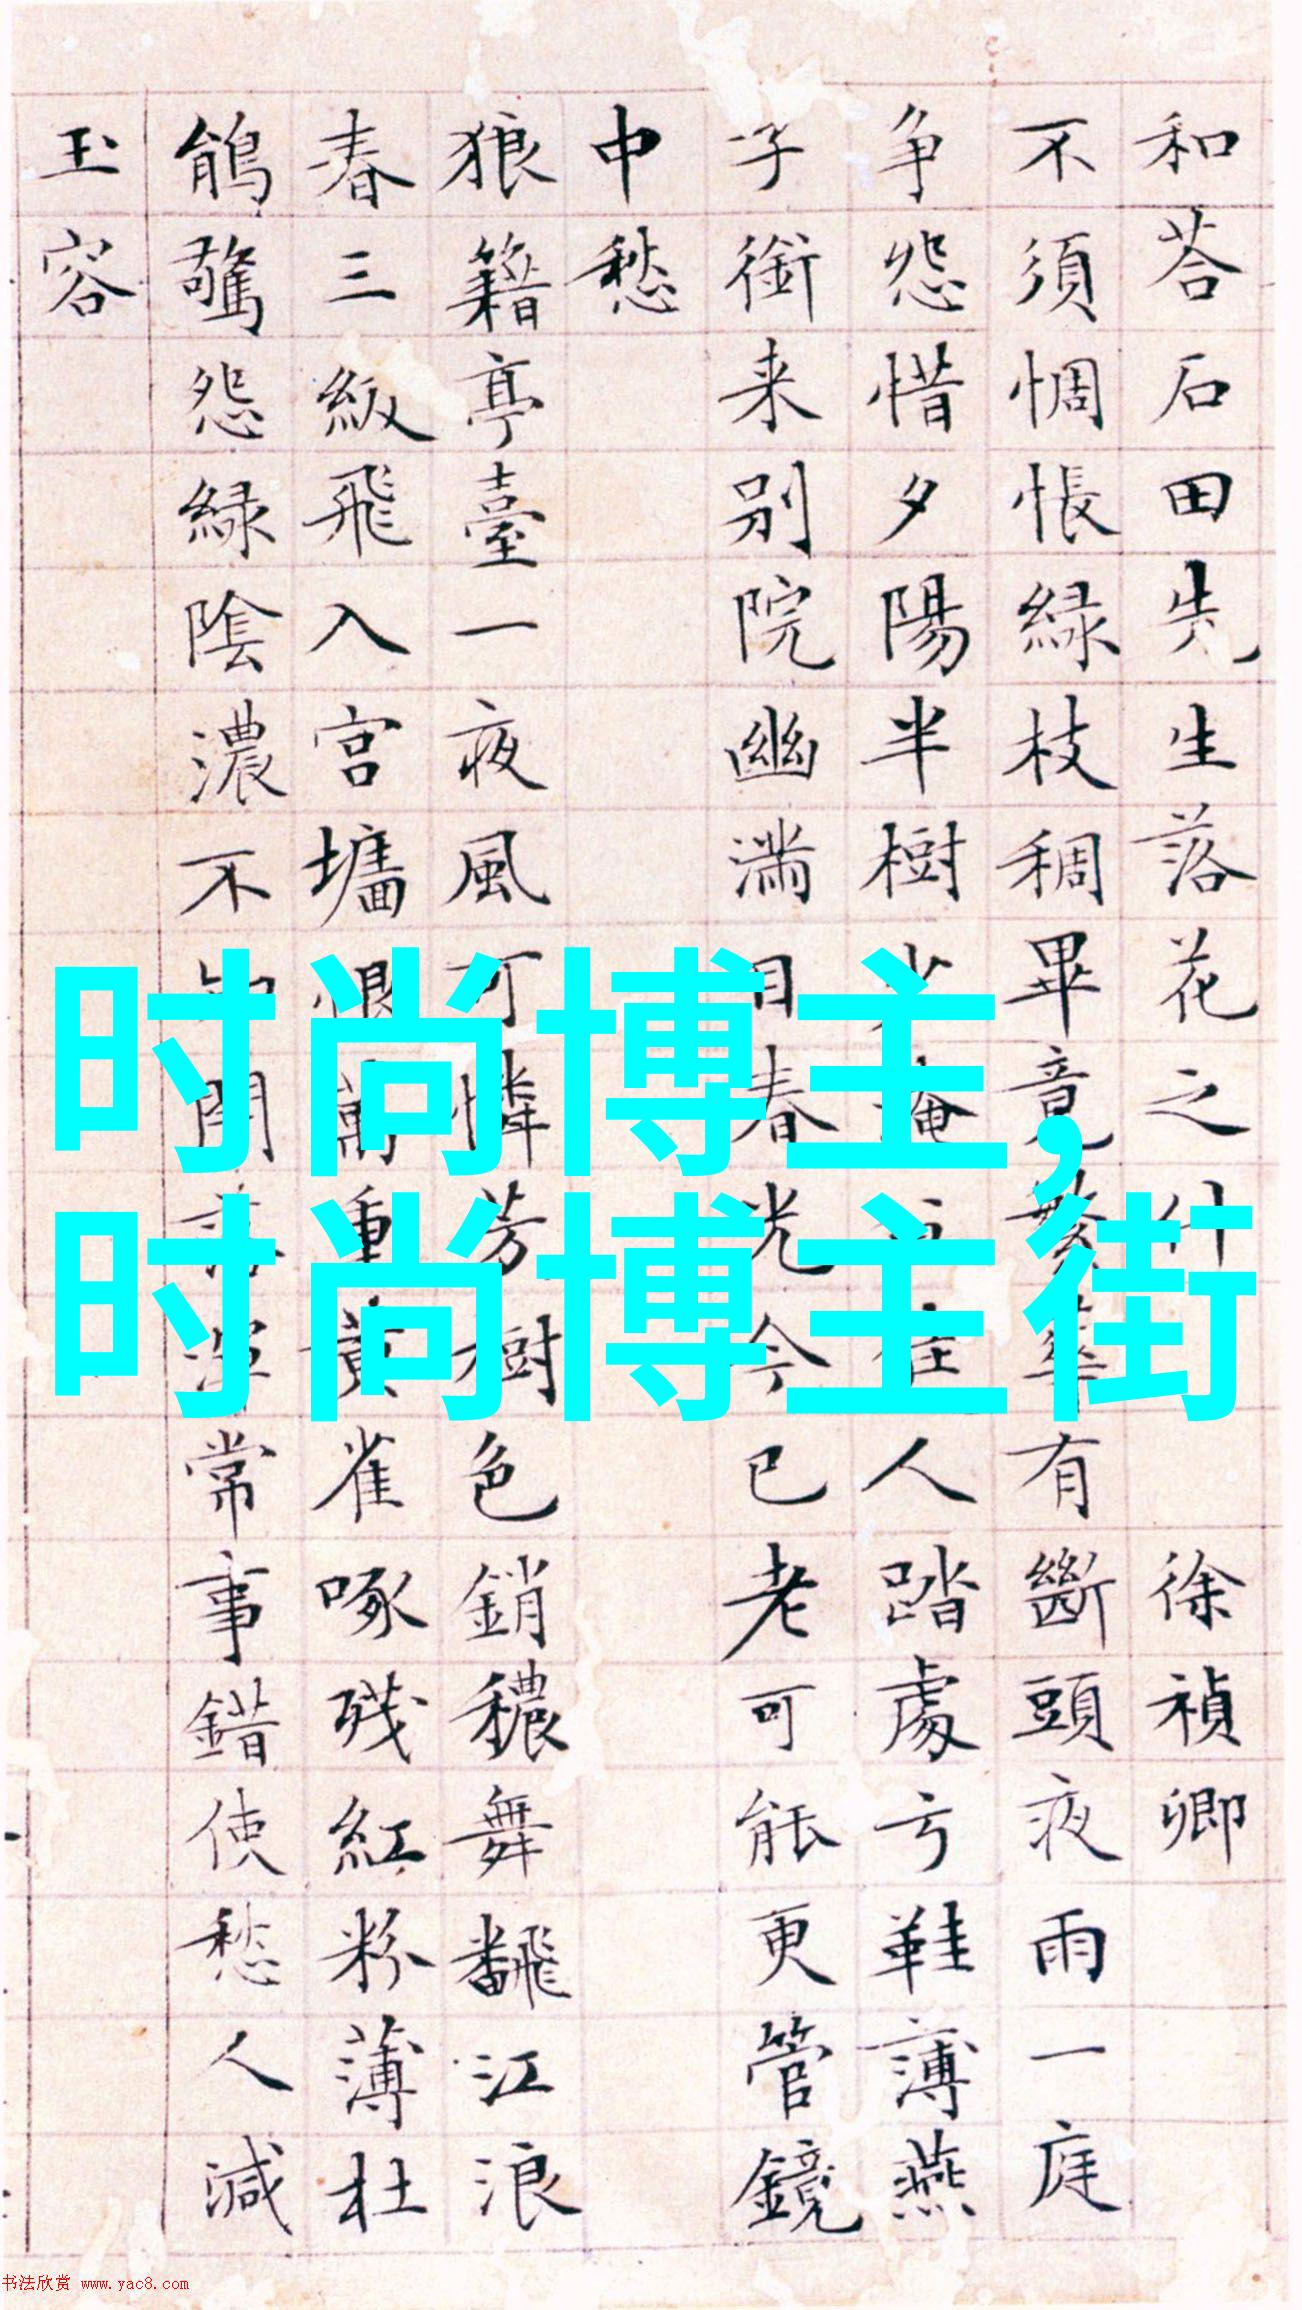 和荅石田先生落花之什 徐禎卿
不須惆悵綠枝稠畢竟繁華有斷頭夜雨一庭
争怨惜夕陽半樹 人踏處亏鞋薄燕
子銜来别院幽满目春光今已老可能更管鏡
中愁
狼籍亭臺一夜風可憐芳樹色銷穠舞飜江浪
春三級飛入宫墻恨萬重黄雀啄残紅粉薄杜
鵑驚怨緑陰濃不 閑 常事錯使愁人减
玉容
时尚博主,
时尚博主街
书法欣赏 www.yac8.com